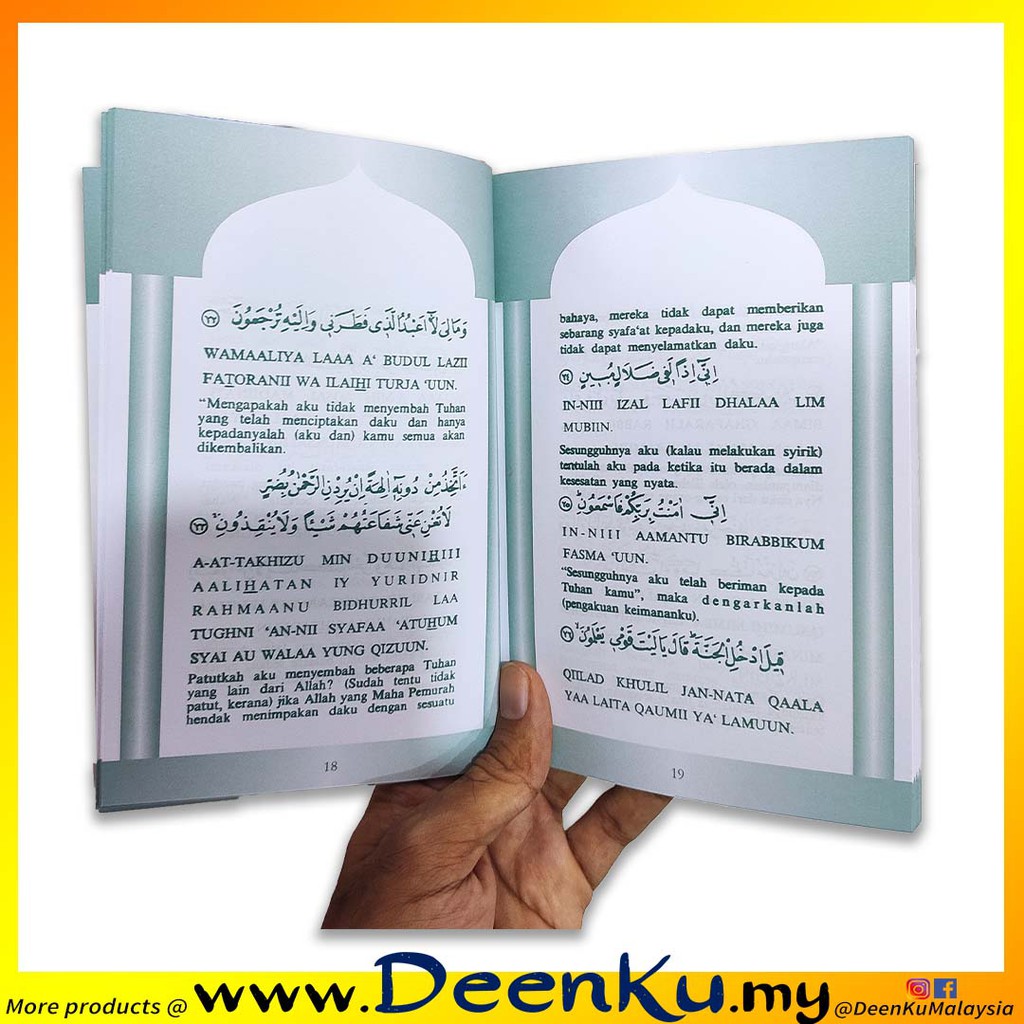 وَمَالِىَ لَآ اَعْبُدُ الَّذِى فَطَرَنِى وَاِلَيْهِ تُرْجَعُوْنَ ﴿٢٢﴾
WAMAALIYA LAAA A‘ BUDUL LAZII
FATORANII WA ILAIHI TURJA ‘UUN.
“Mengapakah aku tidak menyembah Tuhan
yang telah menciptakan daku dan hanya
kepadanyalah (aku dan) kamu semua akan
dikembalikan.
ءَاَتَّخِذُ مِنْ دُوْنِهٖٓ اٰلِهَةً اِنْ يُرِدْنِ الرَّحْمٰنُ بِضُرٍّ
لَا تُغْنِ عَنِّى شَفَاعَتُهُمْ شَيْئًا وَلَا يُنْقِذُوْنِ ﴿٢٣﴾
A-AT-TAKHIZU MIN DUUNIHIII
AALIHATAN IY YURIDNIR
RAHMAANU BIDHURRIL LAA
TUGHNI ‘AN-NII SYAFAA ‘ATUHUM
SYAI AU WALAA YUNG QIZUUN.
Patutkah aku menyembah beberapa Tuhan
yang lain dari Allah? (Sudah tentu tidak
patut, kerana) jika Allah yang Maha Pemurah
hendak menimpakan daku dengan sesuatu
18
bahaya, mereka tidak dapat memberikan
sebarang syafa‘at kepadaku, dan mereka juga
tidak dapat menyelamatkan daku.
اِنِّىٓ اِذًا لَفِى ضَلَالٍ مُبِيْنٍ ﴿٢٤﴾
IN-NIII IZAL LAFII DHALAA LIM
MUBIIN.
Sesungguhnya aku (kalau melakukan syirik)
tentulah aku pada ketika itu berada dalam
kesesatan yang nyata.
اِنِّىٓ اٰمَنْتُ بِرَبِّكُمْ فَاسْمَعُوْنِ ﴿٢٥﴾
IN-NIII AAMANTU BIRABBIKUM
FASMA ‘UUN.
“Sesungguhnya aku telah beriman kepada
Tuhan kamu”, maka dengarkanlah
(pengakuan keimananku).
قِيْلَ ادْخُلِ الْجَنَّةَ قَالَ يَالَيْتَ قَوْمِى يَعْلَمُوْنَ ﴿٢٦﴾
QIILAD KHULIL JAN-NATA QAALA
YAA LAITA QAUMII YA‘ LAMUUN.
19
More products @ www.DeenKu.my @DeenKuMalaysia